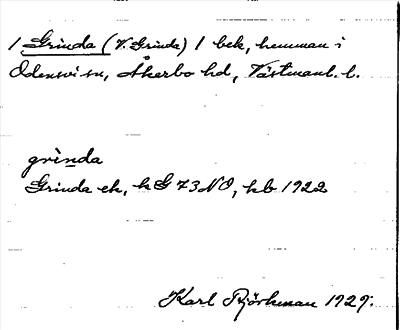 1 Grinda (V. Grinda) 1 bek, hemman i
Odensvi sn, Åkerbo hd, Västmanl. l.
grìnda
Grinda ek, h G 73 NO, hb 1922
Karl Björkman 1929.